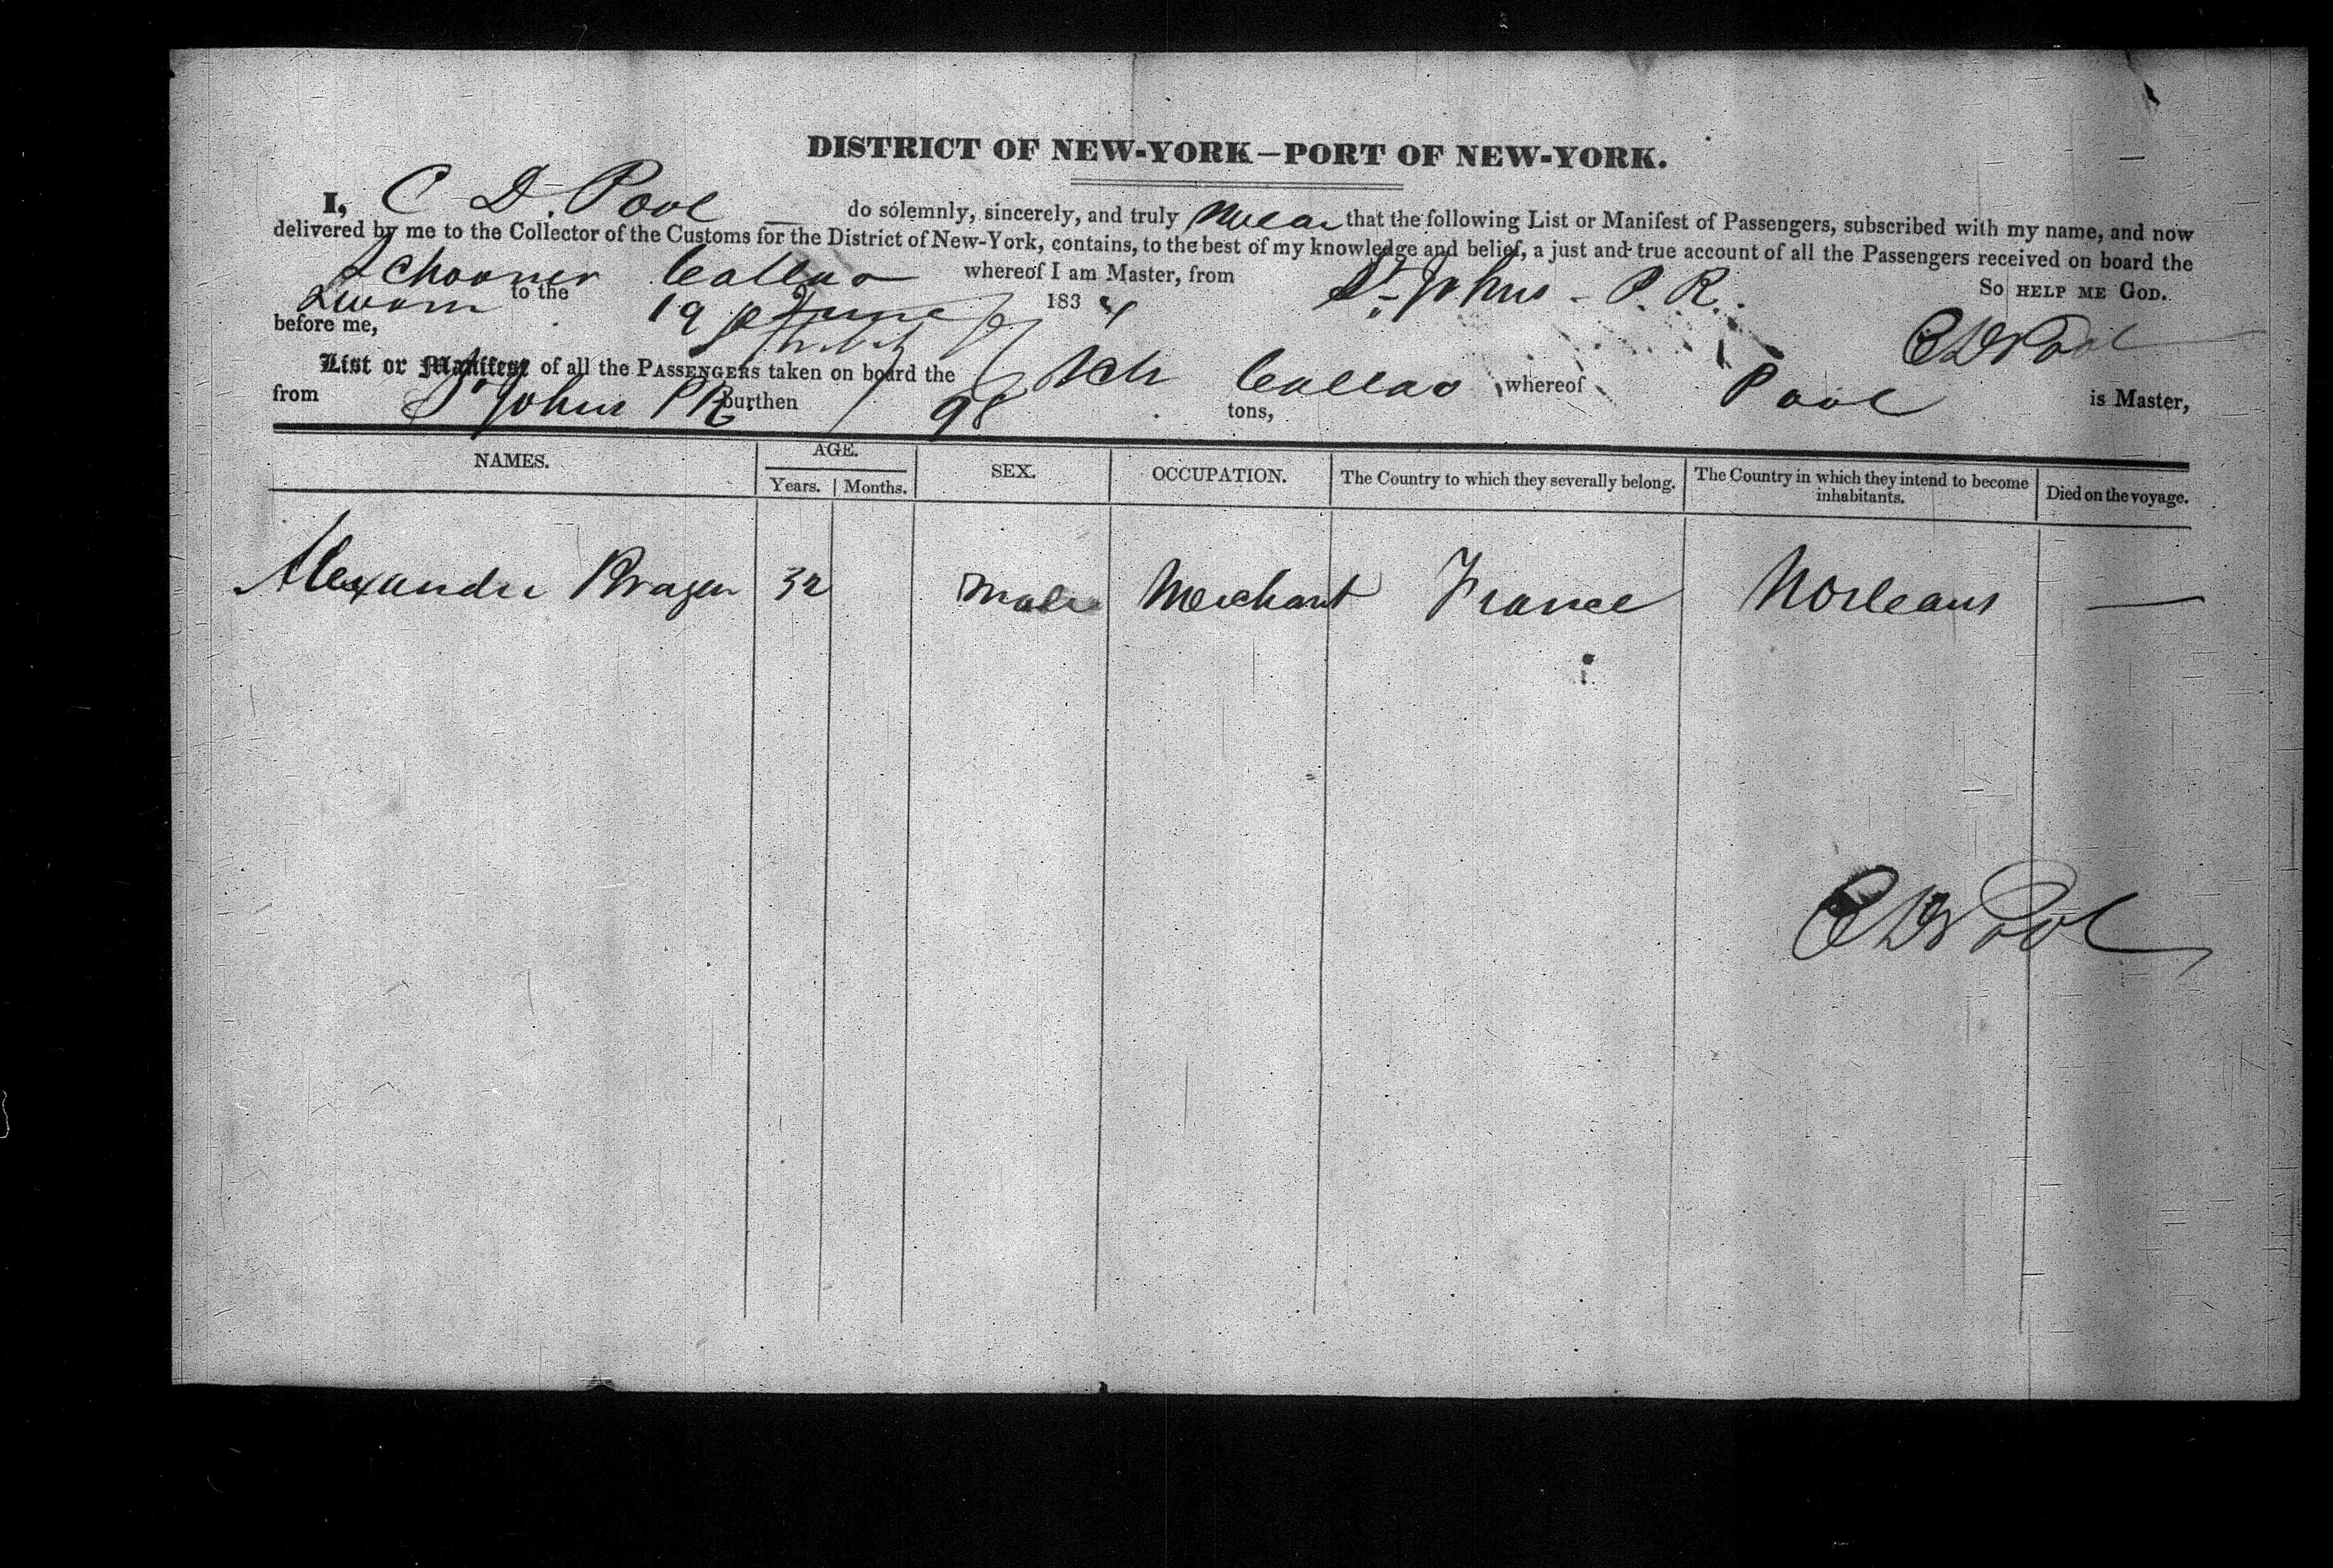 DISTRICT OF NEW-YORK—PORT OF NEW-YORK.
I, C D. Pool do solemnly, sincerely, and truly swear that the following List or Manifest of Passengers, subscribed with my name, and now
delivered by me to the Collector of the Customs for the District of New-York, contains, to the best of my knowledge and belief, a just and true account of all the Passengers received on board the
Schooner Callao whereof I am Master, from St. Johns - P. R.
Sworn to the 19 June 1834 So HELP ME GOD.
before me, C D Pool
List or Manifest of all the PASSENGERS taken on board the Sch Callao whereof Pool is Master,
from St Johns PR burthen 98 tons,
NAMES. AGE. SEX. OCCUPATION. The Country to which they severally belong. The Country in which they intend to become inhabitants. Died on the voyage.
Years. Months.
Alexander 32 Male Merchant France NOrleans —
C D Pool